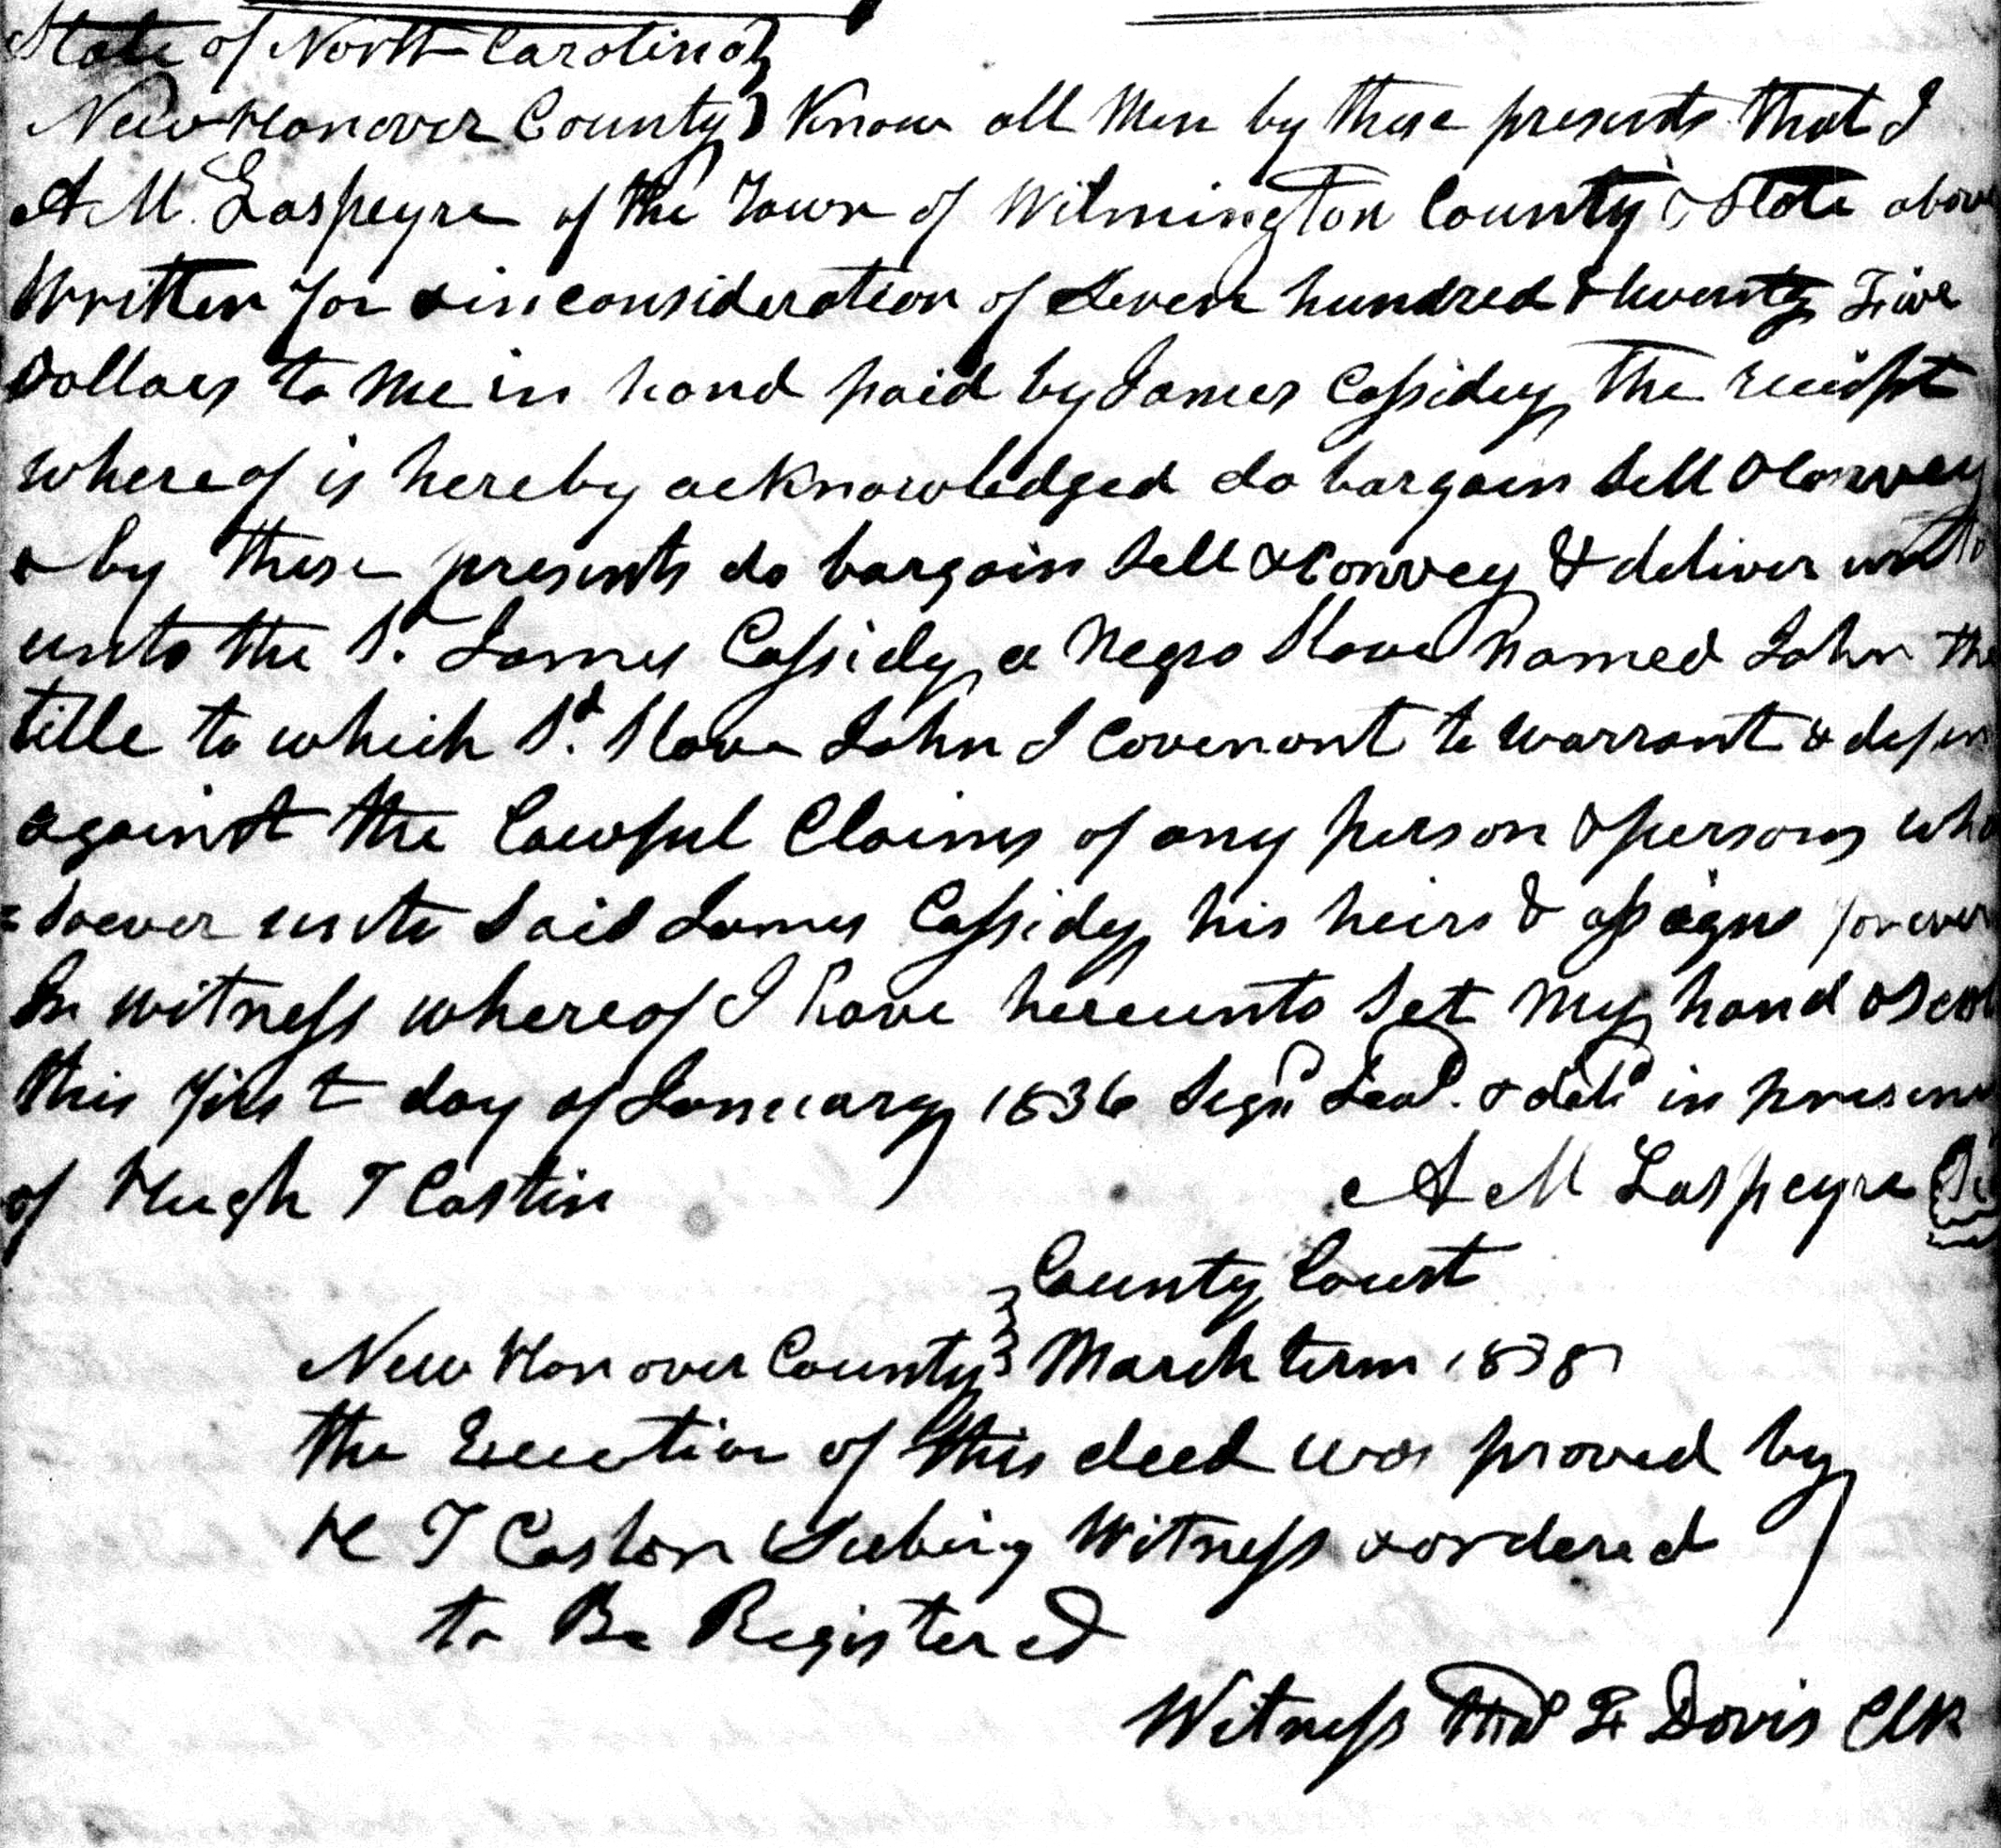 State of North Carolina }
New Hanover County } Know all Men by these presents that I
A. M. Laspeyre of the Town of Wilmington County & State above
Written for & in consideration of Seven hundred & twenty Five
Dollars to me in hand paid by James Cassidey the receipt
whereof is hereby acknowledged do bargain Sell & Convey
& by these presents do bargain Sell & Convey & deliver unto
unto the Sd. James Cassidey a Negro Slave Named John the
title to which Sd. Slave John I Covenant to Warrant & defen
against the Lawful Claims of any person & persons who
=soever unto Said James Cassidey his heirs & assigns forever
In witness whereof I have hereunto Set My hand & Seal
this first day of January 1836 Signd Seald. & deld in presence
of Hugh T Costin
A M Laspeyre
County Court
New Hanover County } March term 1838
the Execution of this deed was proved by
H T Coston Subing Witness & ordered
to Be Registered
Witness Thos F Davis Clk